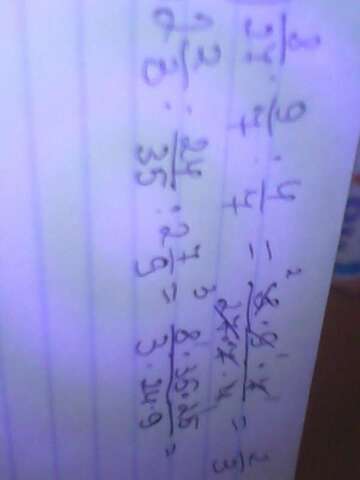 8/27 · 9/7 : 4/7 = 8·9·7/27·7·4 = 2/3
2 2/3 : 24/35 : 2 7/9 = 8·35·25/3·24·9 =